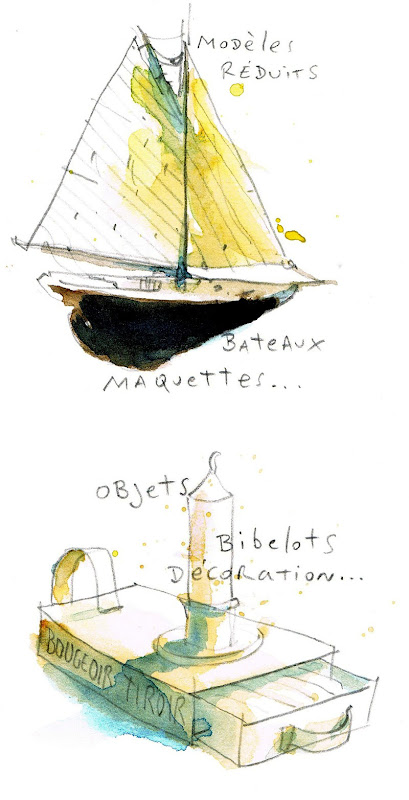 MODÈLES
RÉDUITS
BATEAUX
MAQUETTES...
OBJETS
BIBELOTS
DÉCORATION...
BOUGEOIR TIROIR